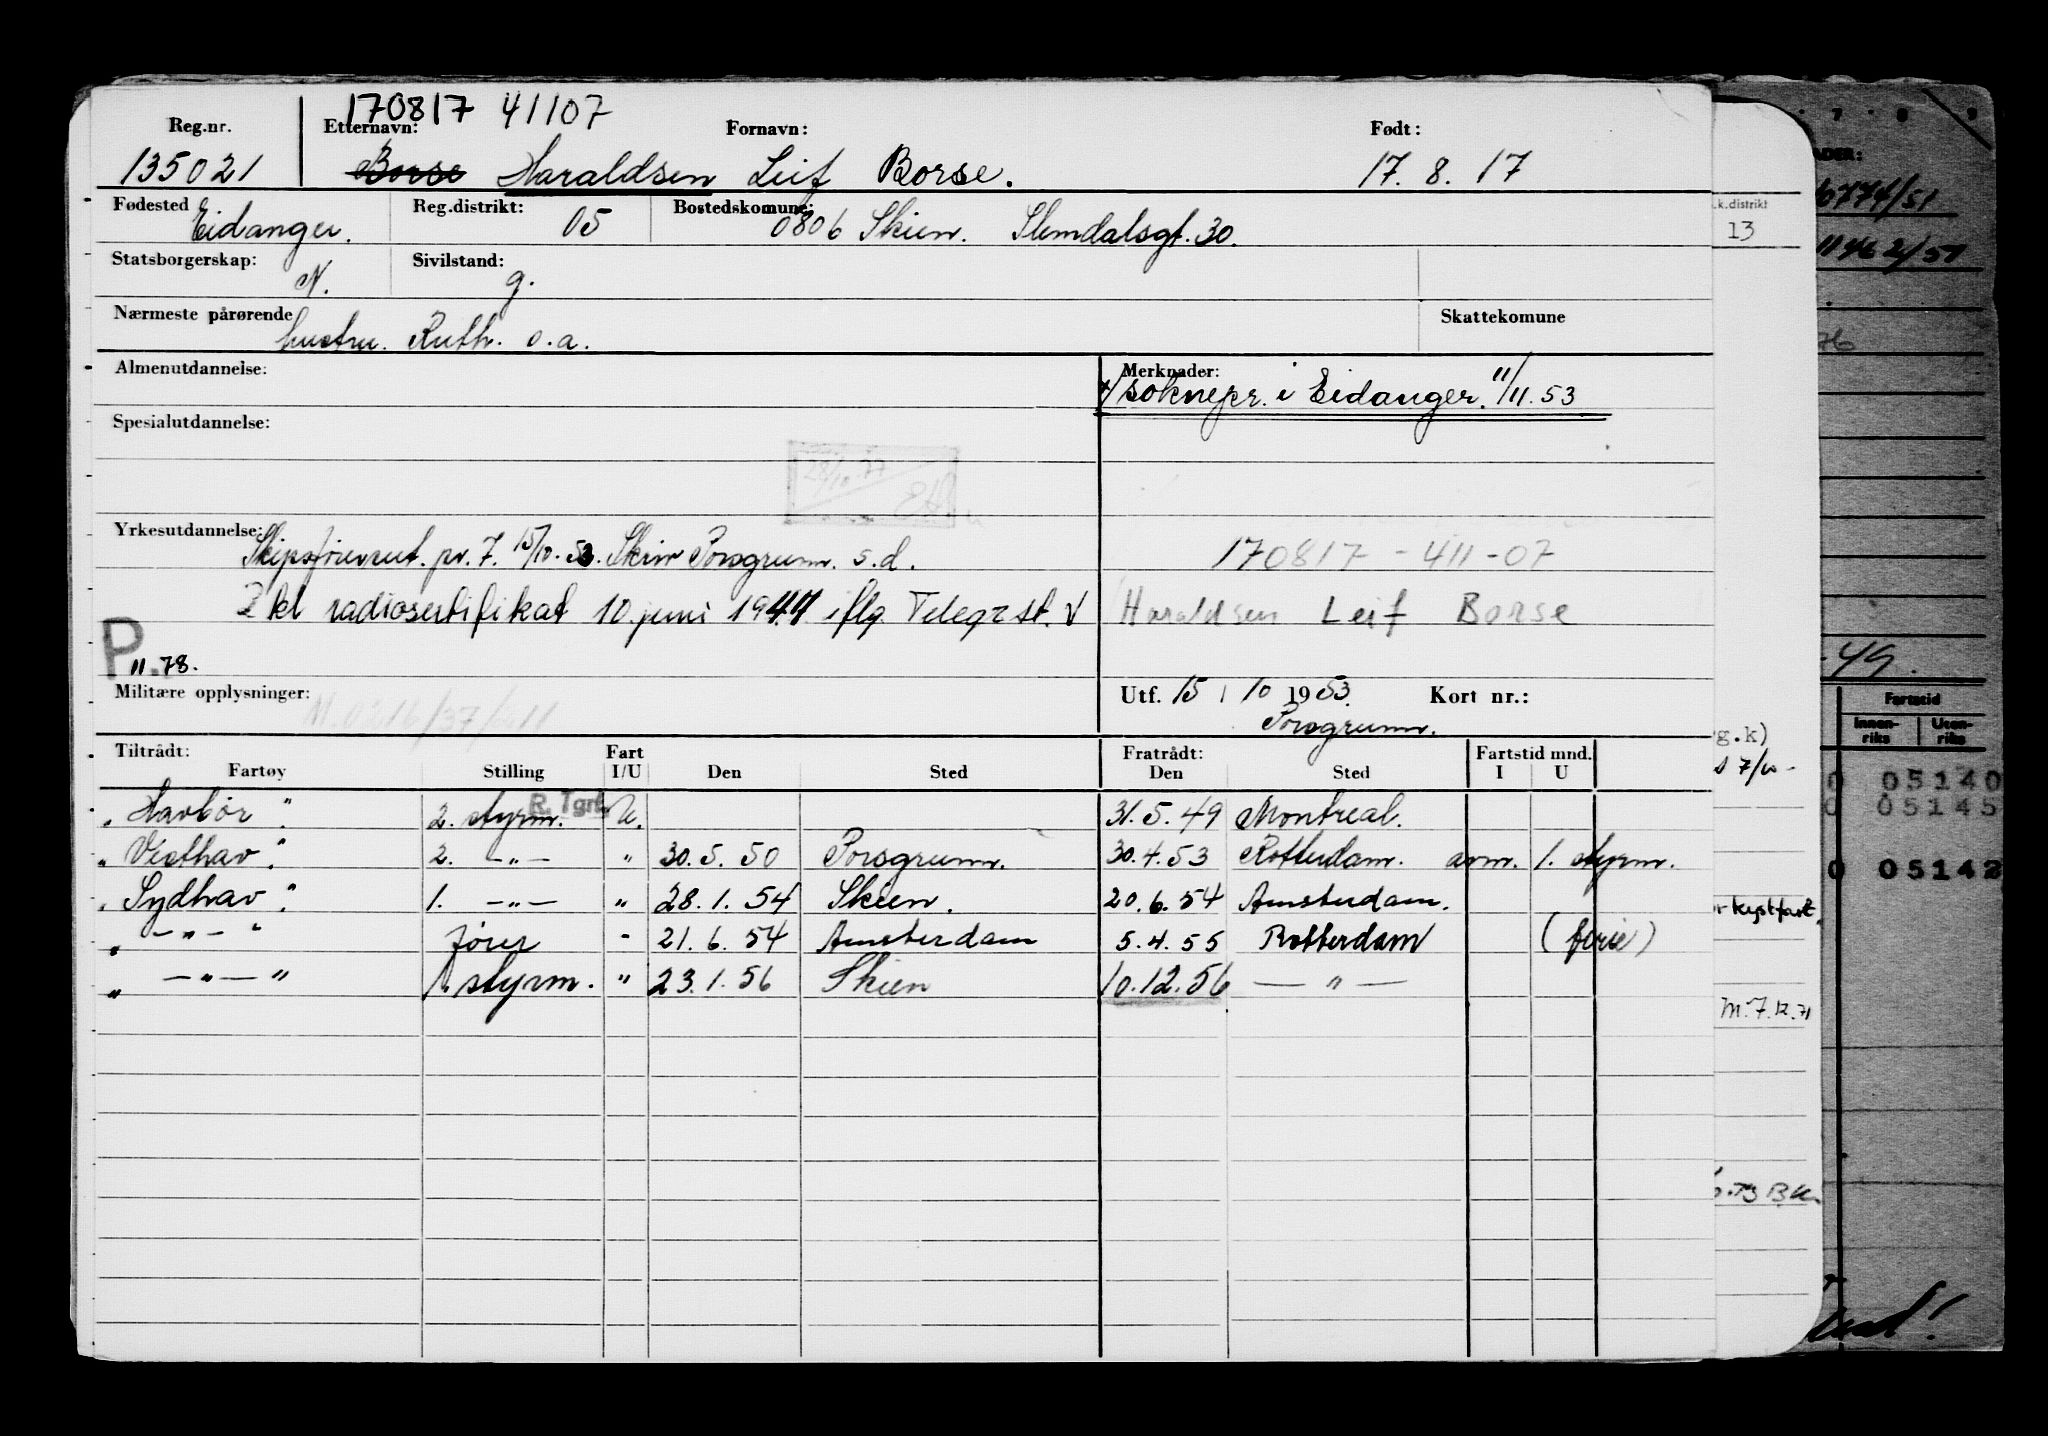 170817 41107
Reg.nr. Etternavn: Fornavn: Født:
135021 Borse Haraldsen Leif Borse. 17. 8. 17
Fødested Eidanger. Reg.distrikt: 05 Bostedskomune: 0806 Skien. Slemdalsgt. 30.
Statsborgerskap: N. Sivilstand: g.
Nærmeste pårørende hustru. Ruth. o.a. Skattekomune
Almenutdannelse: Merknader:
soknepr. i Eidanger. 11/11. 53
Spesialutdannelse:
28/10 77
Yrkesutdannelse: Skipsførerut. pr. 7. 15/10. 53. Skien Porsgrunn. s.d.
170817 - 411 - 07
2 kl radiosertifikat 10. juni 1947 iflg. Telegrst. V
Haraldsen Leif Borse
P. 11.78.
Militære opplysninger: Utf. 15 / 10 1953. Kort nr.:
Porsgrunn.
Tiltrådt: Fart Fratrådt: Fartstid mnd.
Fartøy Stilling I/U Den Sted Den Sted I U
„ Havbør " 2. styrm. R. Tgrf. U. 31. 5. 49 Montreal.
„ Vesthav " 2. —"— " 30. 5. 50 Porsgrunn. 30. 4. 53 Rotterdam. avm. 1. styrm.
„ Sydhav " 1. —"— " 28. 1. 54 Skien. 20. 6. 54 Amsterdam.
„ —"— " fører " 21. 6. 54 Amsterdam 5. 4. 55 Rotterdam (ferie)
„ —"— " 1. styrm. " 23. 1. 56 Skien 10. 12. 56 —"—
7 8 9
6774/51
k.distrikt
13
11462/51
76
-49.
Fartstid
Innen-riks Uten-riks
g.k)
05140
05145
05142
kystfart
M. 7.12.71